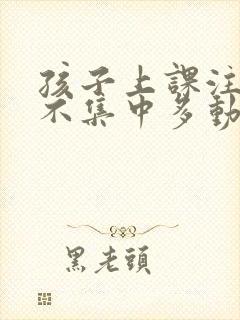 孩子上課注
不集中多動
黑老頭